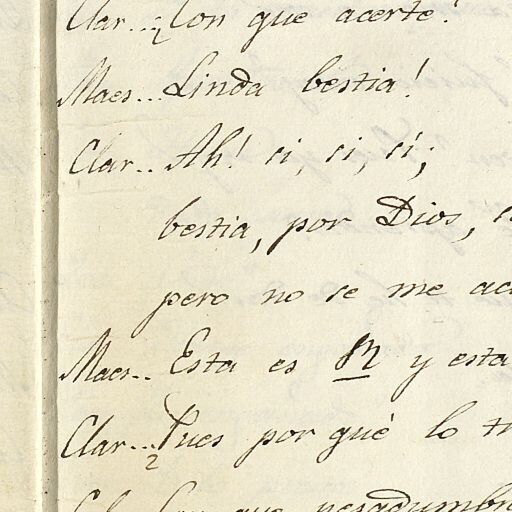 Clar...¿Con que acerté?
Maes...Linda bestia!
Clar.. Ah! si, si, sí;
bestia, por Dios,
pero no se me
Maes.. Esta es N y esta
Clar...Pues por què lo
que pesadumbr